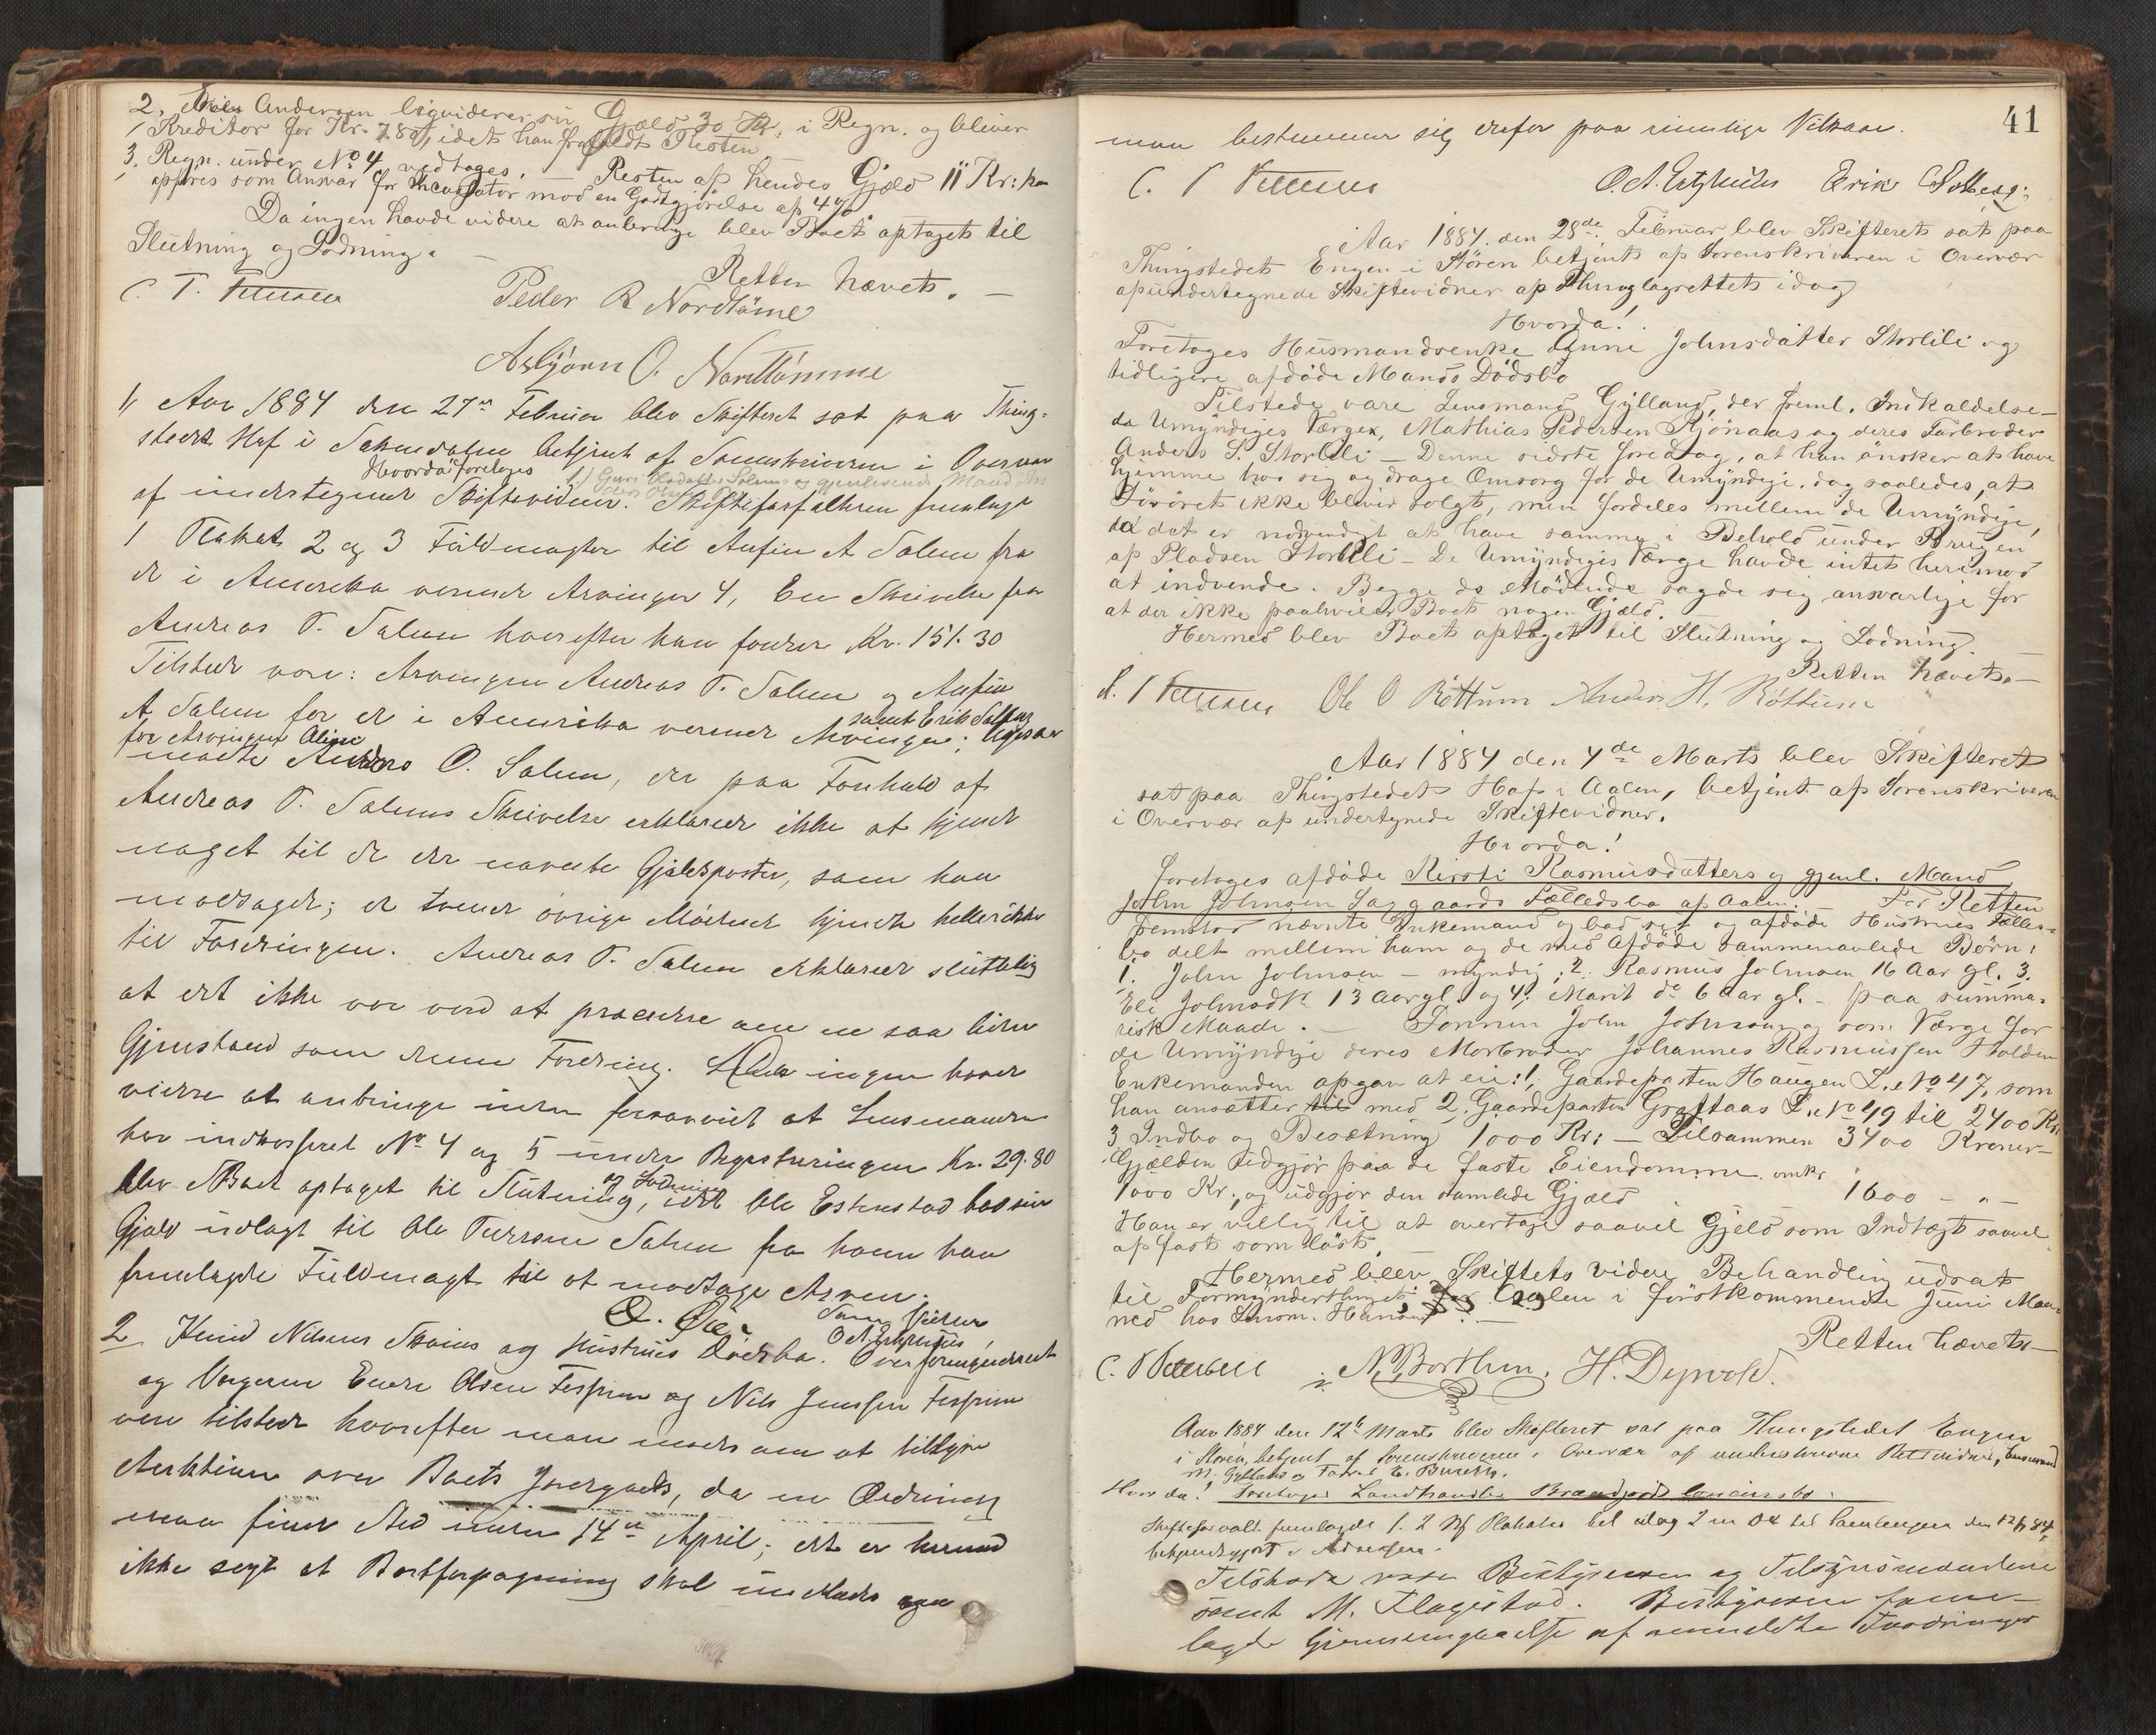 2, Andersen liqviderer sin Gjæld 30 Kr. i Regn. og bliver
Kreditor for Kr. 7.80, idet han frafaldt Resten
3, Regn. under No 4 vedtages. — Resten af hendes Gjæld 11 Kr: kan
opføres som Ansvar for mod en Godtgjørelse af 4%
Da ingen havde videre at anbringe blev Boet optaget til
Slutning og Lodning. —
Retten hævet. —
C. T. Petersen Peder R Nordtømme
Asbjørn O. Nordtømme
1, Aar 1884 den 27de Februar blev Skifteret sat paa Thing-
stedet Hof i Soknedalen betjent af Sorenskriveren i Overvær
Hvorda foretoges 1) Guri Olsdatter Solems og gjenlevende Mand
af undertegnede Skiftevidner. Skifteforfalteren fremlagt
1 Plakat 2 og 3 Fuldmagter til Anfin A Solem fra
de i Amerika værende Arvinger 4, En Skrivelse fra
Andreas T. Solem hvorefter han fordrer Kr. 151.30
Tilstede vare: Arvingen Andreas T. Solem og Anfin
A Solem for de i Amerika værende Arvinger; samt Erik Solberg
for Arvingen Oline
mødte Anders O. Solem, der paa Forhold af
Andreas T. Solems Skrivelse erklærede ikke at kjende
noget til de der nævnte Gjældsposter, som han
modsagde; de tvende øvrige Mødende kjendte heller ikke
til Fordringen. Andreas T. Solem erklærede sluttelig
at det ikke var værd at procedere om en saa liden
Gjenstand som denne Fordring. Da ingen havde
videre at anbringe uden forsaavidt at Lensmanden
har indkasseret No 4 og 5 under Registreringen Kr. 29.80
blev Boet optaget til Slutning og Lodning, idet Ole Estenstad hos sin
Gjæld udlagt til Ole Tursen Solem fra hvem han
fremlagde Fuldmagt til at modtage Arven.
2 Knud Nilsens og Hustrues Dødsbo. Overformynderiet
og Vergerne Einar Olsen og Nils Jenssen
vare tilstede hvorefter man enedes om at tilstyre
Auktion over Boets Jordegods, da en Ordning
maa finde Sted inden 14de April; det er hermed
ikke sagt at Bortforpagtning skal udelukkes

41
man bestemmer sig derfor paa rimelige Vilkaar.
C. T Petersen Erik Solberg:
Aar 1884. den 28de Februar blev Skifteret sat paa
Thingstedet Engen i Støren betjent af Sorenskriveren i Overvær
af undertegnede Skiftevidner af Thinglagrettet idag
Hvorda!
Foretoges Husmandsenke Anne Johnsdatter Storlili og
tidligere afdøde Mands Dødsbo
Tilstede vare Lensmand Gylland, der freml. Indkaldelse—
de Umyndiges Værge, Mathias Pedersen Kjønaas og deres Farbroder
Anders S. Storlili — Denne sidste foredrag, at han ønsker at have
hjemme hos sig og drage Omsorg for de Umyndige, dog saaledes, at
Løsøret ikke bliver solgt, men fordeles mellem de Umyndige,
da det er nødvendigt at have samme i Behold under Brugen
af Pladsen Storlili — De Umyndiges Værge havde intet herimod
at indvende. Begge de Mødende sagde sig ansvarlige for
at der ikke paahviler Boet nogen Gjæld.
Hermed blev Boet optaget til Slutning og Lodning.
Retten hævet. —
C. T Petersen Ole O Røttum Anders H. Røttum
Aar 1884 den 4de Marts blev Skifteret
sat paa Thingstedet Hof i Aalen, betjent af Sorenskriveren
i Overvær af undertegnede Skiftevidner.
Hvorda!
foretoges afdøde Kirsti Rasmusdatters og gjenl. Mand
John Johnsen Saggaards Fælledsbo af Aalen. For Retten
fremstod nævnte Enkemand og bad sit og afdøde Hustrues Fælles-
bo delt mellem ham og de med Afdøde sammenavlede Børn:
1. John Johnsen — myndig; 2. Rasmus Johnsen 16 Aar gl. 3.
Eli Johnsdtr 13 Aar gl. og 4, Marit do 6 Aar gl. — paa summa-
risk Maade. — Sønnen John Johnsen og som Værge for
de Umyndige deres Morbroder Johannes Rasmussen Holden
Enkemanden opgav at eie: 1, Gaardeparten Haugen L. No 47, som
han ansætter til med 2, Gaardeparten Graftaas L. No 49 til 2400 Kr.
3 Indbo og Besætning 1000 Kr: — Tilsammen 3400 Kroner—
Gjælden udgjør paa de faste Eiendomme omkr
1000 Kr., og udgjør den samlede Gjæld 1600 — " —
Han er villig til at overtage saavel Gjeld som Indtægt saavel
af fast som løst.
Hermed blev Skiftets videre Behandling udsat
til Formynderthinget for Aalen i førstkommende Juni Maa-
ned hos Lensm.
Retten hævet—
C. T Petersen N. Borthen. H. Dyrvold.
Aar 1884 den 12te Marts blev Skifteret sat paa Thingstedet Engen
i Støren, betjent af Sorenskriveren i Overvær af underskrevne Retsvidner, Lensmand
M. Gylland og
Hvorda! Foretoges Landhandler
Skifteforvalt. fremlagde 1. 2 Plakater
bekjendtgjort i Adressen.
Tilstede vare Bestyreren og Tilsynsmændene
samt M. Flagestad. Bestyreren frem-
lagde Gjennemgaaelse af anmeldte Fordringer